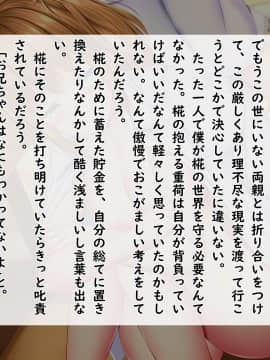 でもうこの世にいない両親とは折り合いをつけ
て、この厳しくあり理不尽な現実を渡って行こ
うとどこかで決心していたに違いない。
たった一人で僕が椛の世界を守る必要なんて
なかった。椛の抱える重荷は自分が背負ってい
けばいいだなんて軽々しく思っていたのかもし
れない。なんて傲慢でおこがましい考えをして
いたんだろう。
椛のために蓄えた貯金を、自分の総てに置き
換えたりなんかして酷く浅ましいし言葉も出な
い。
椛にそのことを打ち明けていたらきっと叱責
されているだろう。
「お兄ちゃんはなにもわかってないよ」と。